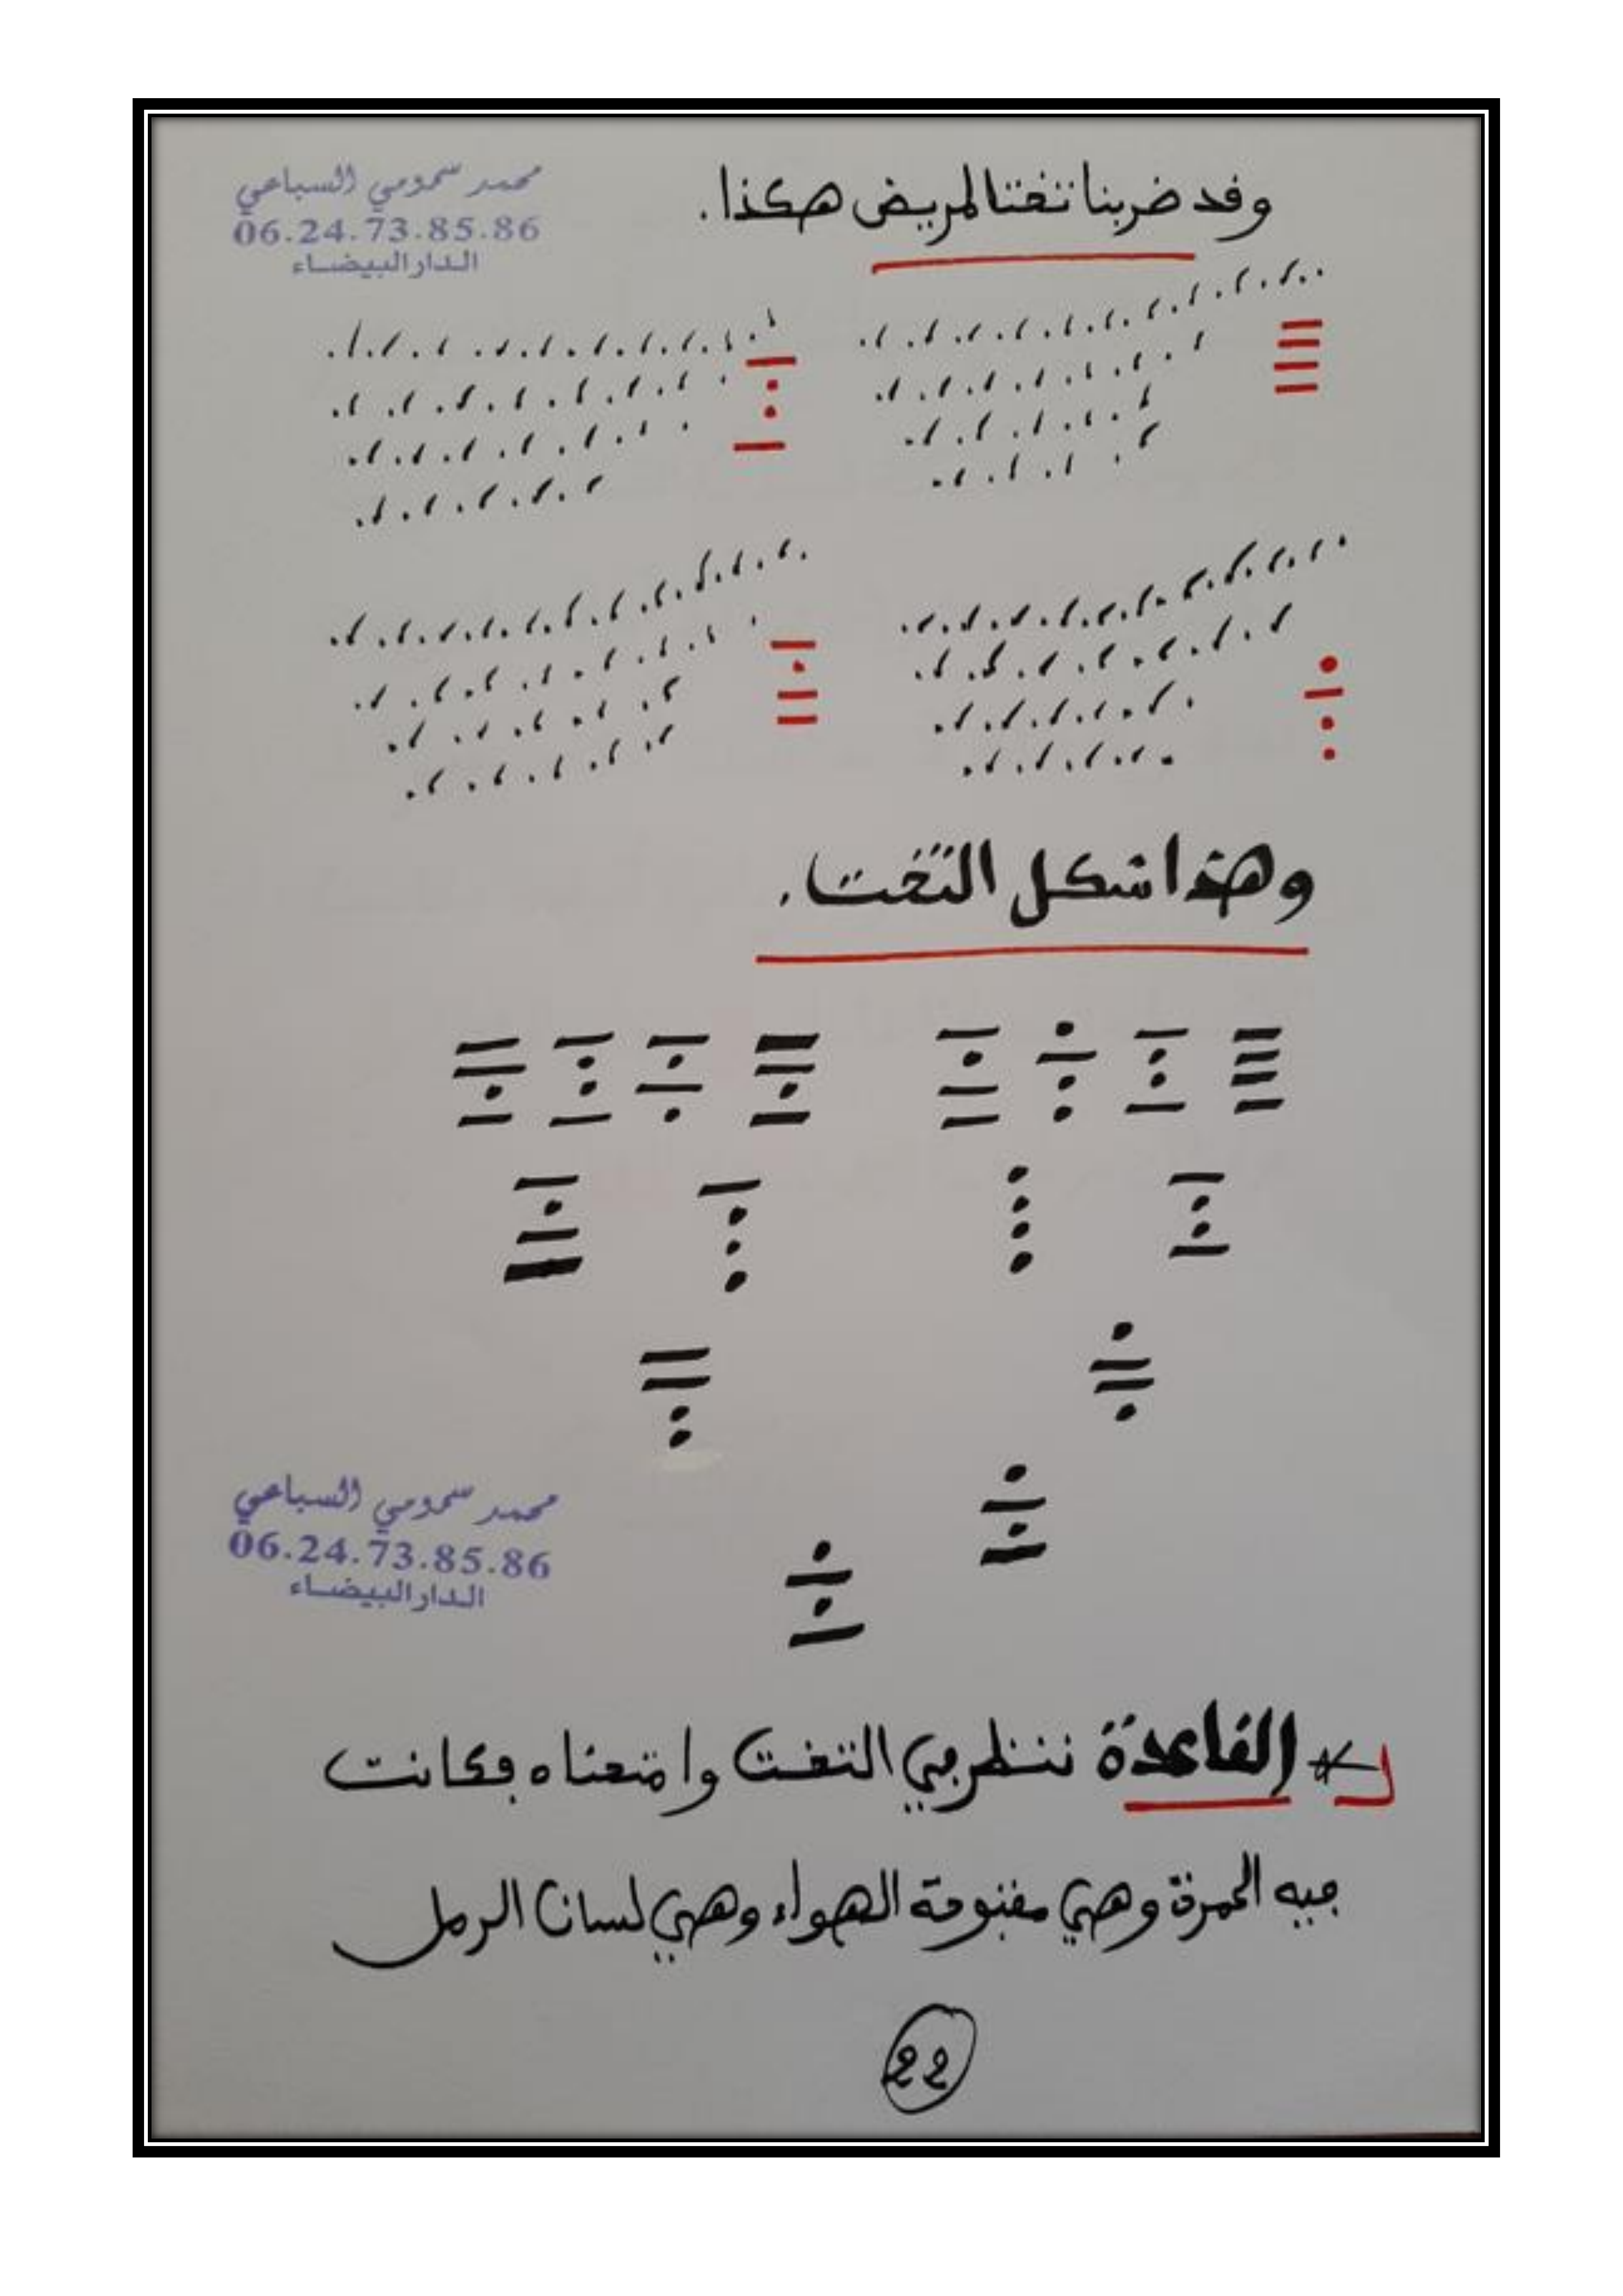 محمد سمومي السباعي
06.24.73.85.86
الدار البيضاء
وفد ضربنا تختا لمريض هكذا.
وهذا شكل التخت.
محمد سمومي السباعي
06.24.73.85.86
الدار البيضاء
القاعدة ننظر في التخت وامتعناه فكانت
فيه الحمرة وهي مفتوحة الهواء وهي لسان الرمل
22